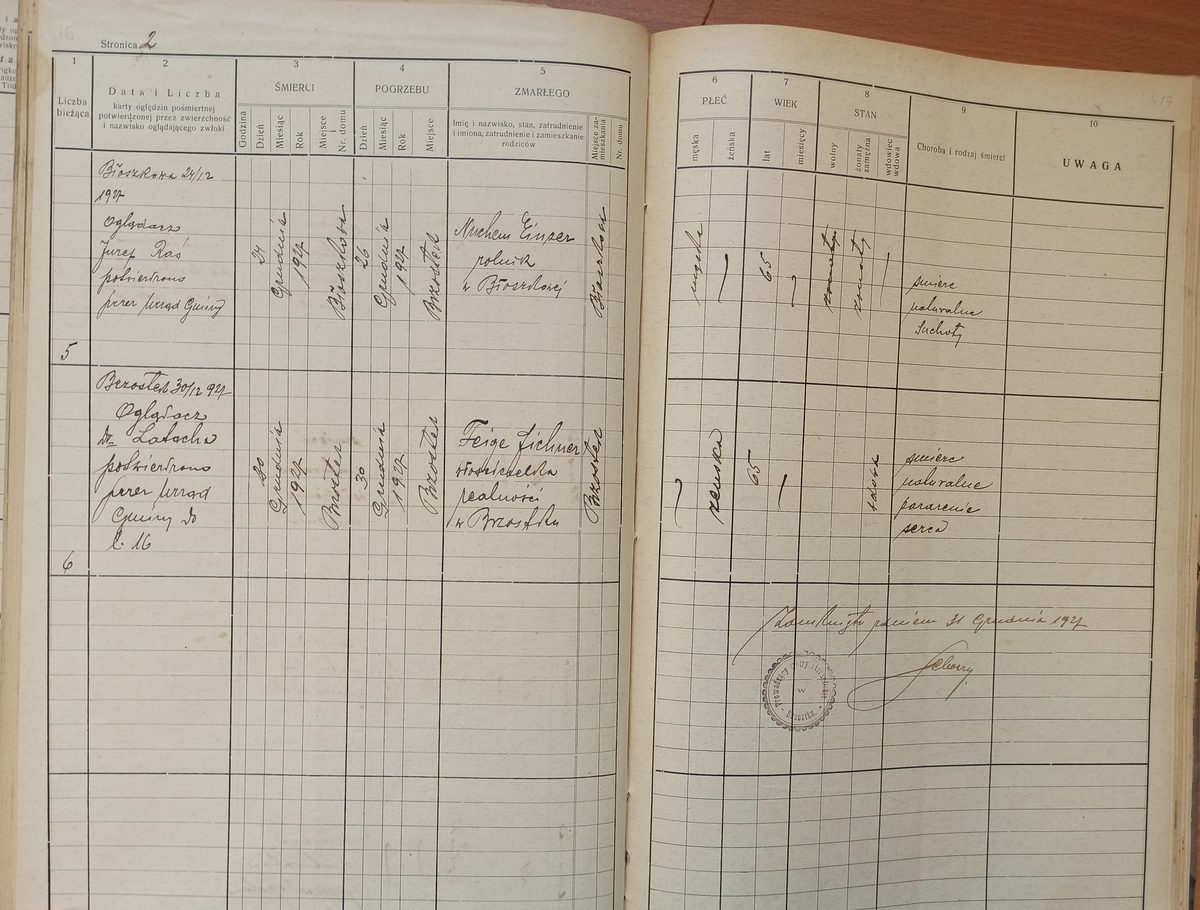 Stronica 2
1
2
3
4
5
6
7
8
9
10
Liczba
bieżąca
Data i Liczba
karty oględzin pośmiertnej
potwierdzonej przez zwierzchność
i nazwisko oglądającego zwłoki
ŚMIERCI
Godzina
Dzień
Miesiąc
Rok
Miejsce
i
Nr. domu
POGRZEBU
Dzień
Miesiąc
Rok
Miejsce
ZMARŁEGO
Imię i nazwisko, stan, zatrudnienie
i imiona, zatrudnienie i zamieszkanie
rodziców
Miejsce za-
mieszkania
Nr. domu
PŁEĆ
męska
żeńska
WIEK
lat
miesięcy
STAN
wolny
żonaty
zamężna
wdowiec
wdowa
Choroba i rodzaj śmierci
UWAGA
417
5
Błoszkowa 24/12
1927
Oglądacz
Józef Raś
potwierdzono
przez Urząd Gminy
24
Grudnia
1927
Błoszkowa
26
Grudnia
1927
Brzostek
Nuchem Einzer
rolnik
w Błoszkowej
Błoszkowa
męska
65
żonaty
śmierć
naturalna
Suchoty
6
Brzostek 30/12 927
Oglądacz
dr Latacha
potwierdzono
przez Urząd
Gminy do
l. 16
30
Grudnia
1927
Brzostek
30
Grudnia
1927
Brzostek
Feige Lichner
właścicielka
realności
w Brzostku
Brzostek
żeńska
65
wdowa
śmierć
naturalna
porażenie
serca
Zamknięto z dniem 31 Grudnia 1927
w